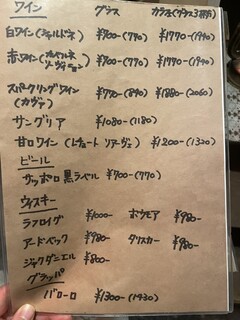 ワイン グラス カラフェ(グラス3杯分)
白ワイン(シャルドネ) ¥700-(770) ¥1770-(1940)
赤ワイン(カベルネ ¥700-(770) ¥1770-(1940)
ソーヴィニヨン)
スパークリングワイン ¥770-(890) ¥1880-(2060)
(カヴァ)
サングリア ¥1080-(1180)
甘口ワイン(レチョート ソアーヴェ) ¥1200-(1320)
ビール
サッポロ黒ラベル ¥700-(770)
ウィスキー
ラフロイグ ¥1000- ボウモア ¥980-
アードベック ¥980- タリスカー ¥980-
ジャックダニエル ¥800-
グラッパ
バローロ ¥1300-(1430)